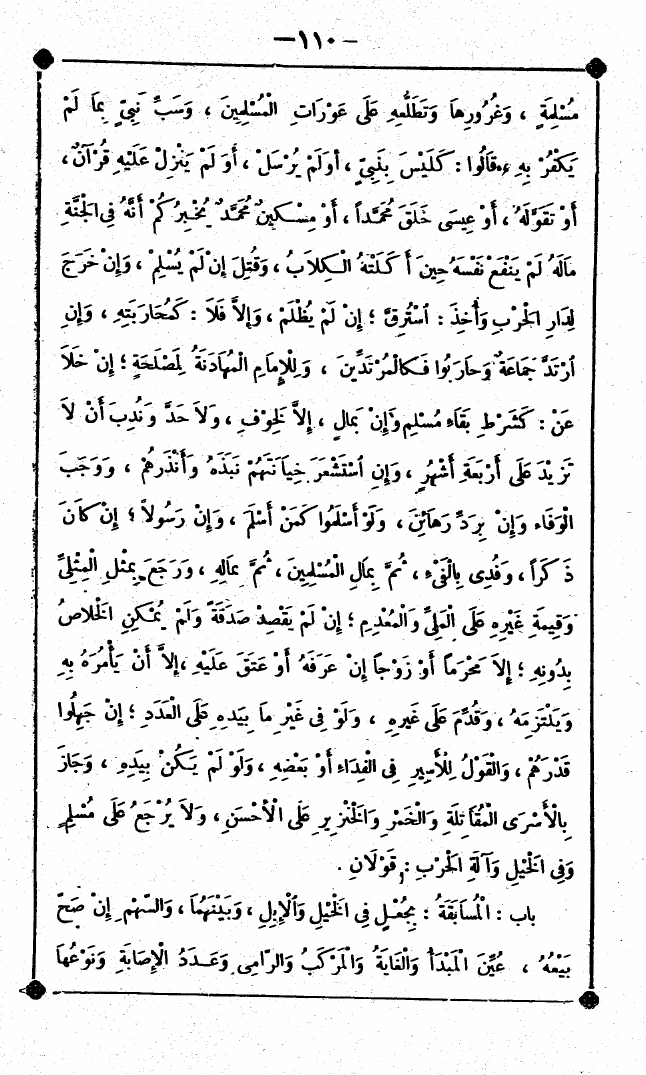 — ١١٠ —
مُسْلِمَةٍ ، وَغُرُورِهَا وَتَطَلُّعِهِ عَلَى عَوْرَاتِ الْمُسْلِمِينَ ، وَسَبِّ نَبِيٍّ بِمَا لَمْ
يَكْفُرْ بِهِ ، قَالُوا : كَلَيْسَ بِنَبِيٍّ ، أَوْ لَمْ يُرْسَلْ ، أَوْ لَمْ يَنْزِلْ عَلَيْهِ قُرْآنٌ ،
أَوْ تَقَوَّلَهُ ، أَوْ عِيسَى خَلَقَ مُحَمَّداً ، أَوْ مِسْكِينٌ مُحَمَّدٌ يُخْبِرُكُمْ أَنَّهُ فِي الْجَنَّةِ
مَالَهُ لَمْ يَنْفَعْ نَفْسَهُ حِينَ أَكَلَتْهُ الْكِلَابُ ، وَقُتِلَ إِنْ لَمْ يُسْلِمْ ، وَإِنْ خَرَجَ
لِدَارِ الْحَرْبِ وَأُخِذَ : اسْتُرِقَّ ؛ إِنْ لَمْ يُظْلَمْ ، وَإِلاَّ فَلاَ : كَمُحَارَبَتِهِ ، وَإِنِ
ارْتَدَّ جَمَاعَةٌ وَحَارَبُوا فَكَالْمُرْتَدِّينَ ، وَلِلْإِمَامِ الْمُهَادَنَةُ لِمَصْلَحَةٍ ؛ إِنْ خَلاَ
عَنْ : كَشَرْطِ بَقَاءِ مُسْلِمٍ وَإِنْ بِمَالٍ ، إِلاَّ لِخَوْفٍ ، وَلاَ حَدَّ وَنُدِبَ أَنْ لاَ
تَزِيدَ عَلَى أَرْبَعَةِ أَشْهُرٍ ، وَإِنِ اسْتَشْعَرَ خِيَانَتَهُمْ نَبَذَهُ وَأَنْذَرَهُمْ ، وَوَجَبَ
الْوَفَاءُ وَإِنْ بِرَدِّ رَهَائِنَ ، وَلَوْ أَسْلَمُوا كَمَنْ أَسْلَمَ ، وَإِنْ رَسُولاً ؛ إِنْ كَانَ
ذَكَراً ، وَفُدِيَ بِالْفَيْءِ ، ثُمَّ بِمَالِ الْمُسْلِمِينَ ، ثُمَّ بِمَالِهِ ، وَرَجَعَ بِمِثْلِ الْمِثْلِيِّ
وَقِيمَةِ غَيْرِهِ عَلَى الْمَلِيِّ وَالْمُعْدِمِ ؛ إِنْ لَمْ يَقْصِدْ صَدَقَةً وَلَمْ يُمْكِنِ الْخَلاَصُ
بِدُونِهِ ؛ إِلاَّ مَحْرَماً أَوْ زَوْجاً إِنْ عَرَفَهُ أَوْ عَتَقَ عَلَيْهِ ، إِلاَّ أَنْ يَأْمُرَهُ بِهِ
وَيَلْتَزِمَهُ ، وَقُدِّمَ عَلَى غَيْرِهِ ، وَلَوْ فِي غَيْرِ مَا بِيَدِهِ عَلَى الْعَدَدِ ؛ إِنْ جَهِلُوا
قَدْرَهُمْ ، وَالْقَوْلُ لِلْأَسِيرِ فِي الْفِدَاءِ أَوْ بَعْضِهِ ، وَلَوْ لَمْ يَكُنْ بِيَدِهِ ، وَجَازَ
بِالْأَسْرَى الْمُقَاتِلَةِ وَالْخَمْرِ وَالْخِنْزِيرِ عَلَى الْأَحْسَنِ ، وَلاَ يُرْجَعُ عَلَى مُسْلِمٍ
وَفِي الْخَيْلِ وَآلَةِ الْحَرْبِ : قَوْلاَنِ .
باب : الْمُسَابَقَةُ : بِجُعْلٍ فِي الْخَيْلِ وَالْإِبِلِ ، وَبَيْنَهُمَا ، وَالسَّهْمِ إِنْ صَحَّ
بَيْعُهُ ، عُيِّنَ الْمَبْدَأُ وَالْغَايَةُ وَالْمَرْكَبُ وَالرَّامِي وَعَدَدُ الْإِصَابَةِ وَنَوْعُهَا